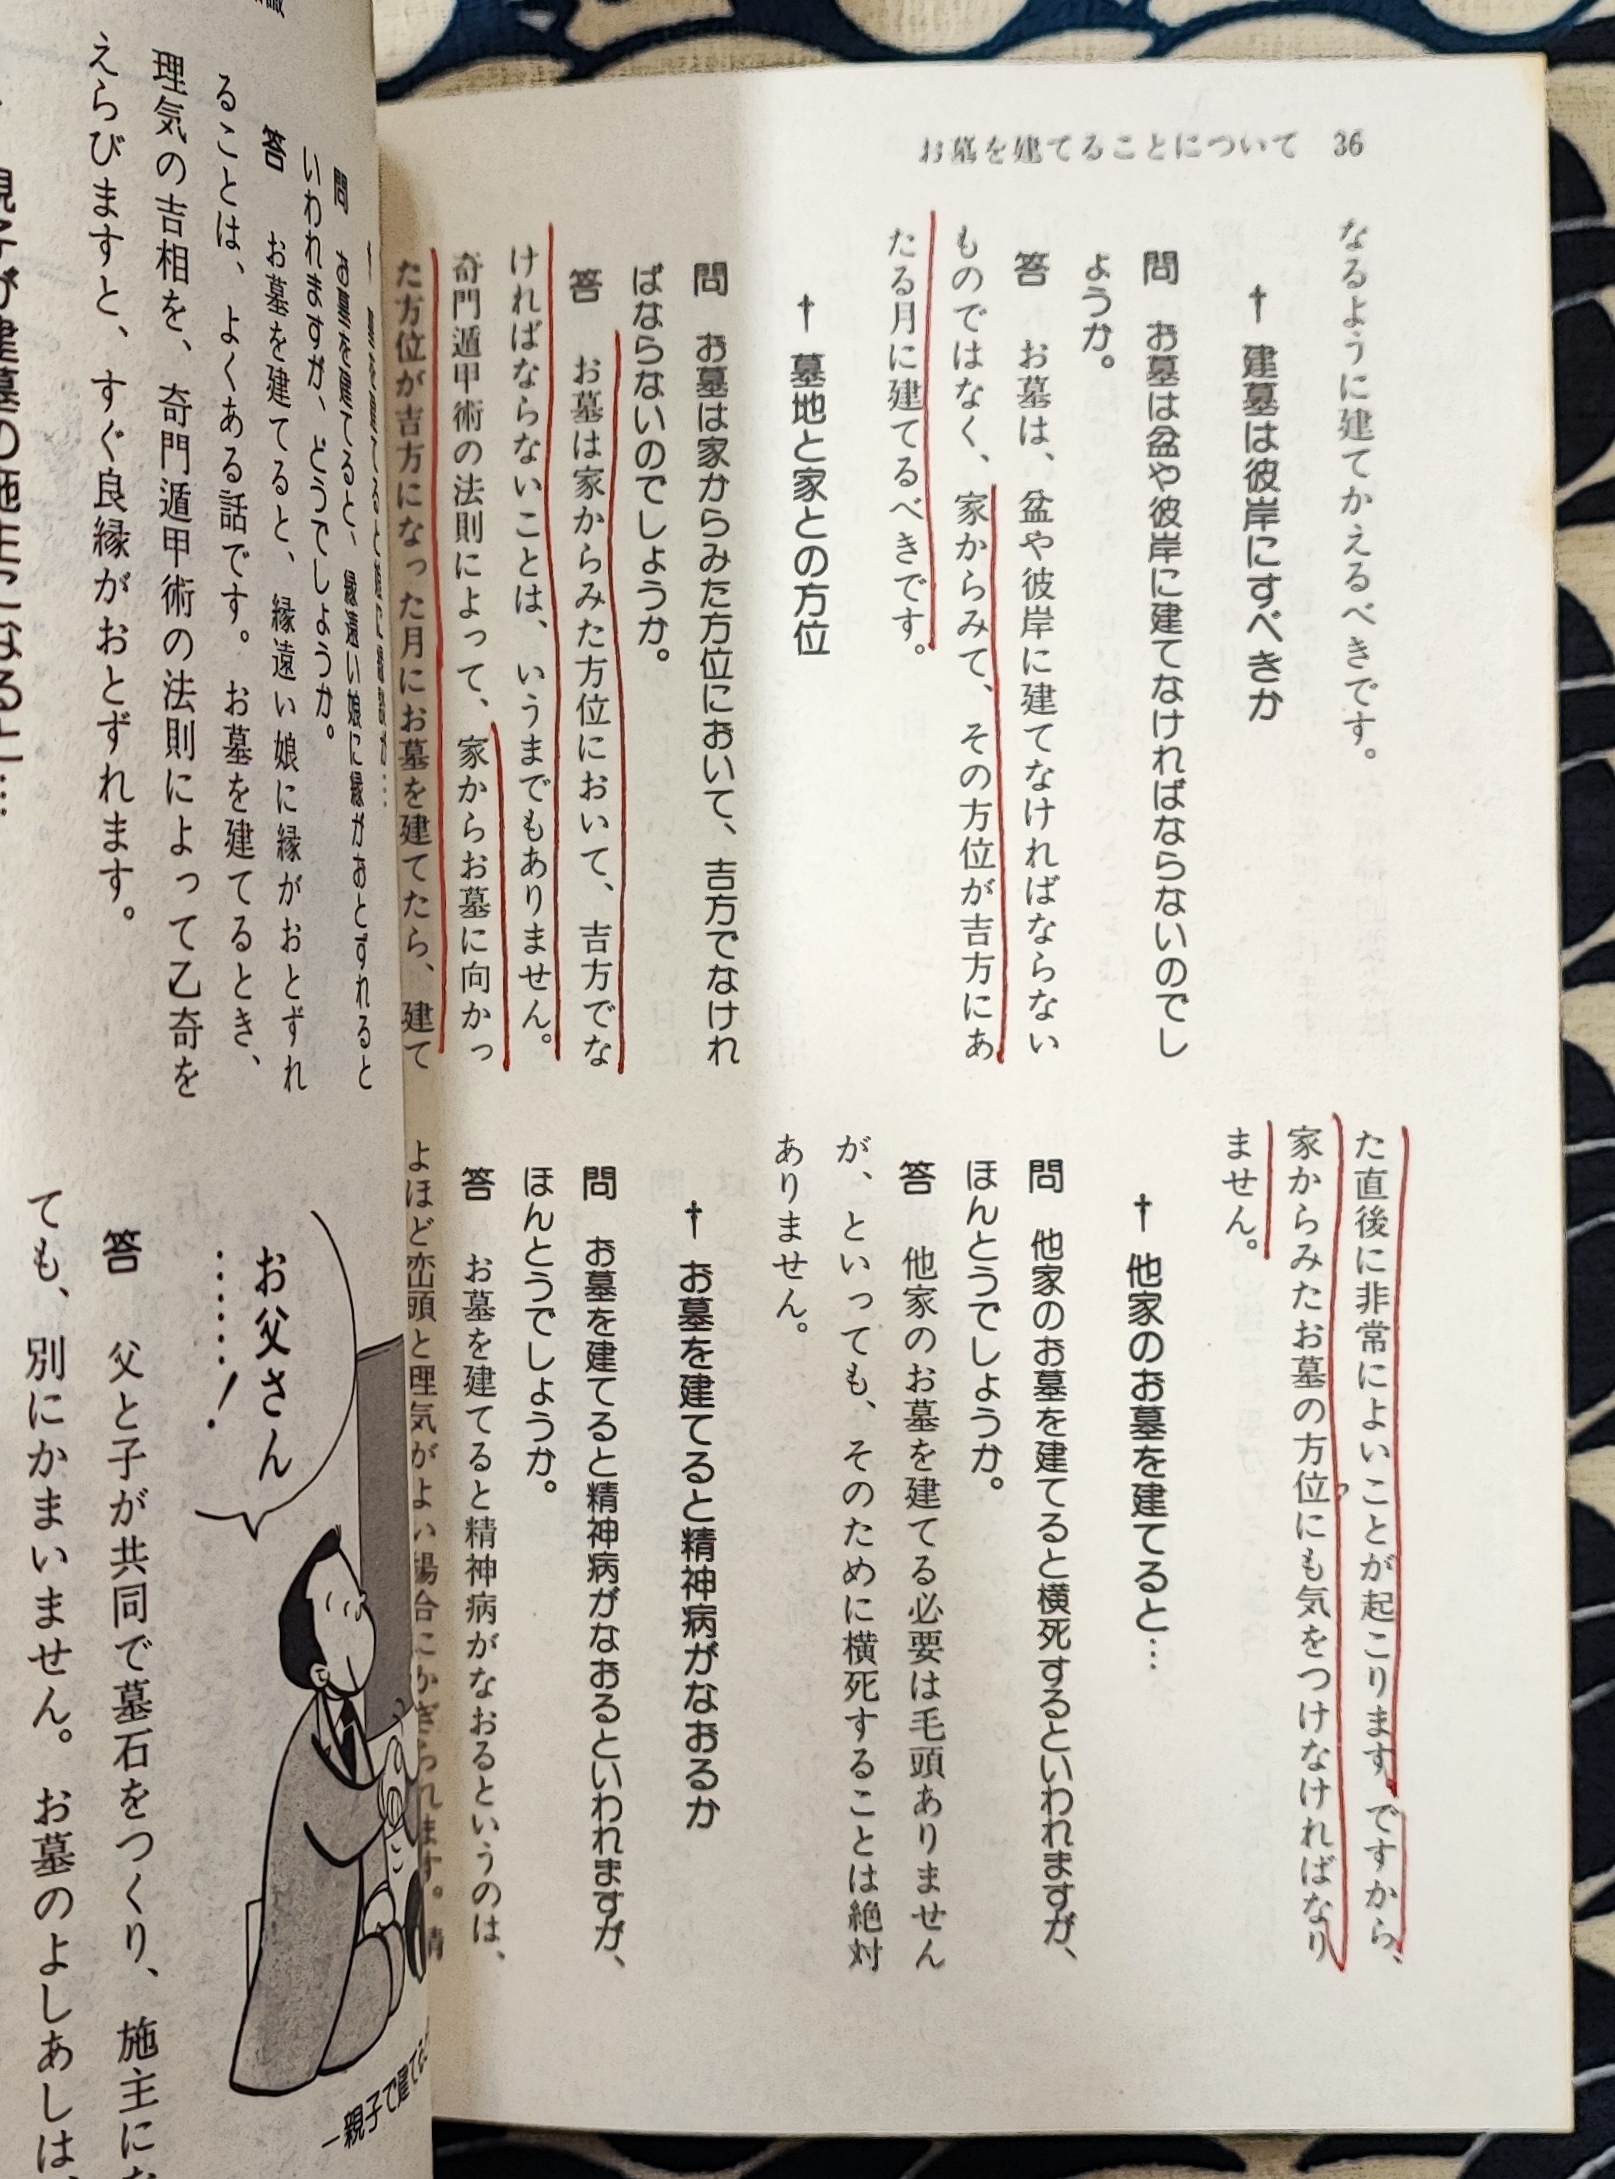 お墓を建てることについて 36
なるように建てかえるべきです。
† 建墓は彼岸にすべきか
問 お墓は盆や彼岸に建てなければならないのでし
ょうか。
答 お墓は、盆や彼岸に建てなければならない
ものではなく、家からみて、その方位が吉方にあ
たる月に建てるべきです。
† 墓地と家との方位
問 お墓は家からみた方位において、吉方でなけれ
ばならないのでしょうか。
答 お墓は家からみた方位において、吉方でな
ければならないことは、いうまでもありません。
奇門遁甲術の法則によって、家からお墓に向かっ
た方位が吉方になった月にお墓を建てたら、建て
た直後に非常によいことが起こります。ですから、
家からみたお墓の方位にも気をつけなければなり
ません。
† 他家のお墓を建てると…
問 他家のお墓を建てると横死するといわれますが、
ほんとうでしょうか。
答 他家のお墓を建てる必要は毛頭ありません
が、といっても、そのために横死することは絶対
ありません。
† お墓を建てると精神病がなおるか
問 お墓を建てると精神病がなおるといわれますが、
ほんとうでしょうか。
答 お墓を建てると精神病がなおるというのは、
よほど巒頭と理気がよい場合にかぎられます。精
問 お墓を建てると、縁遠い娘に縁がおとずれると
いわれますが、どうでしょうか。
答 お墓を建てると、縁遠い娘に縁がおとずれ
ることは、よくある話です。お墓を建てるとき、
理気の吉相を、奇門遁甲術の法則によって乙奇を
えらびますと、すぐ良縁がおとずれます。
親子が建墓の施主になると…
お父さん
……！
答 父と子が共同で墓石をつくり、施主にな
ても、別にかまいません。お墓のよしあしは、
―親子で建てる